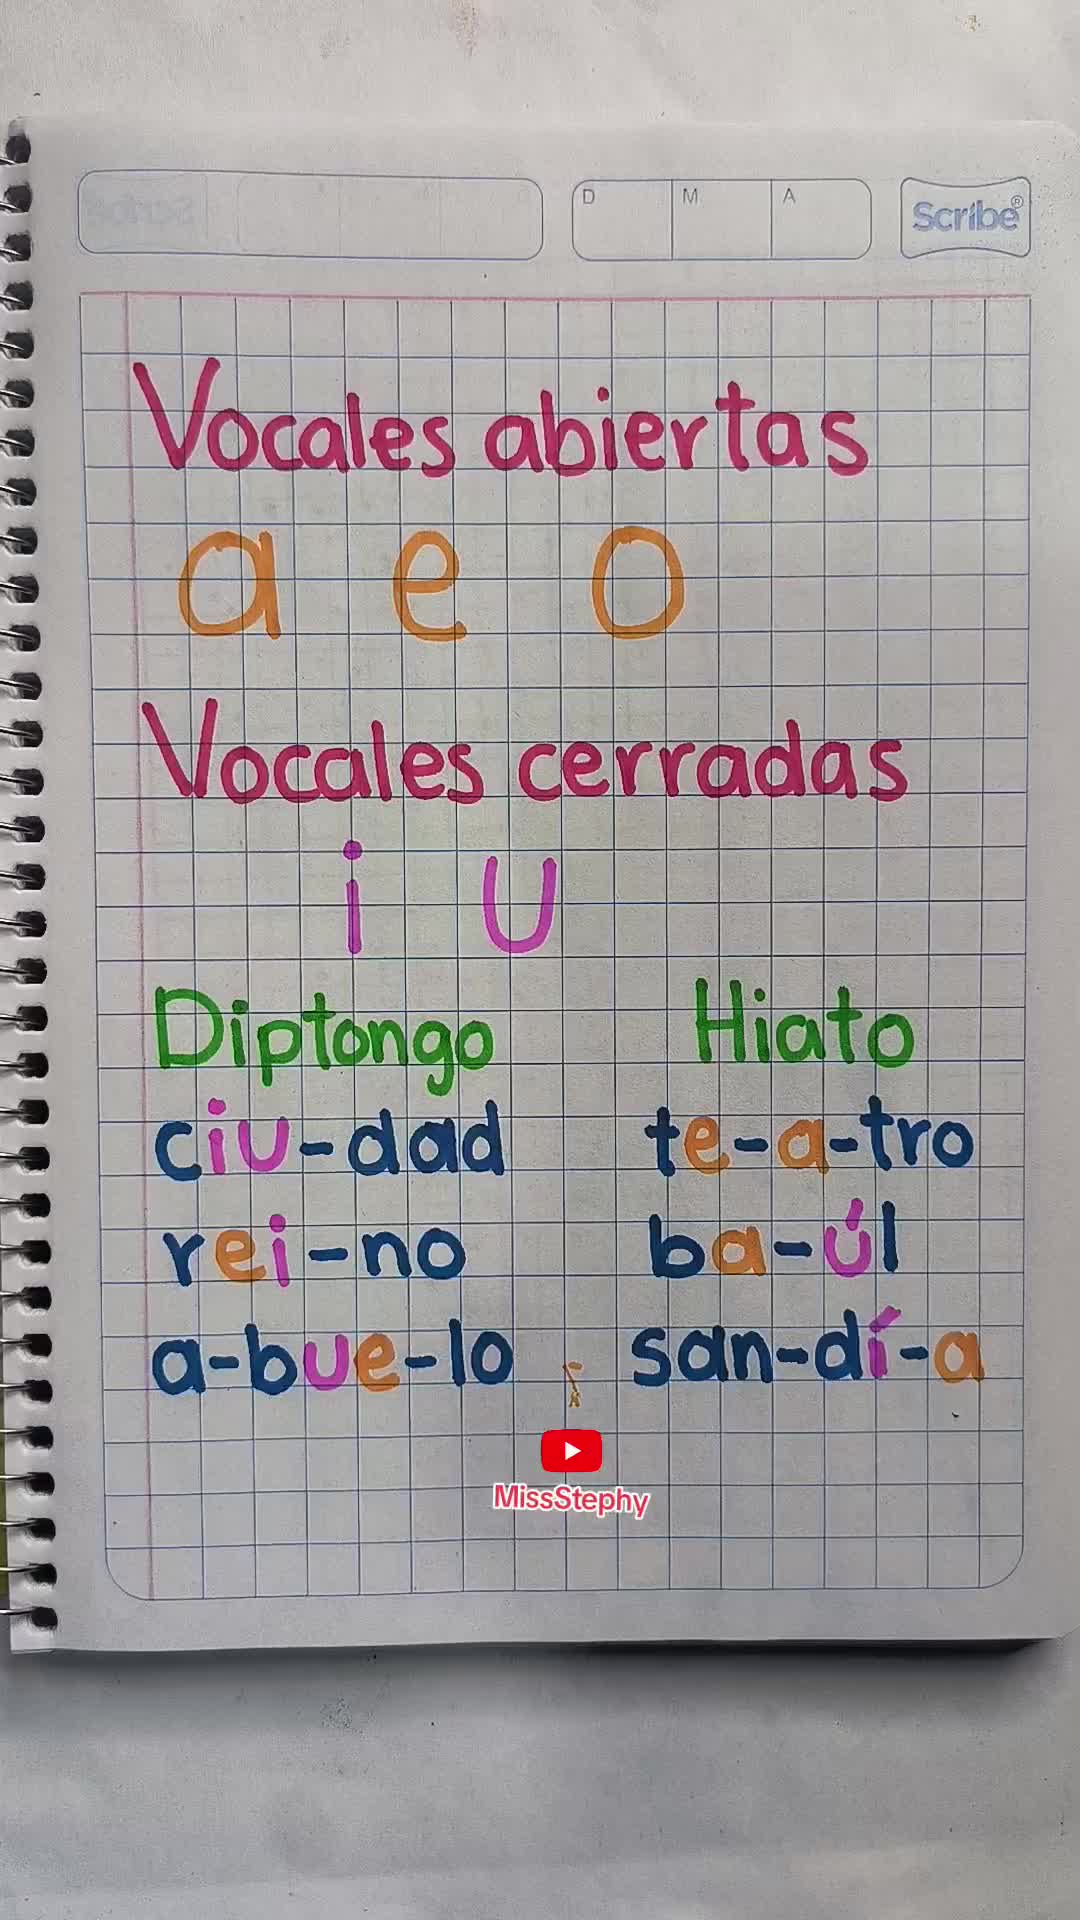 D M A Scribe®
Vocales abiertas
a e o
Vocales cerradas
i u
Diptongo Hiato
ciu-dad te-a-tro
rei-no ba-úl
a-bue-lo san-dí-a
MissStephy